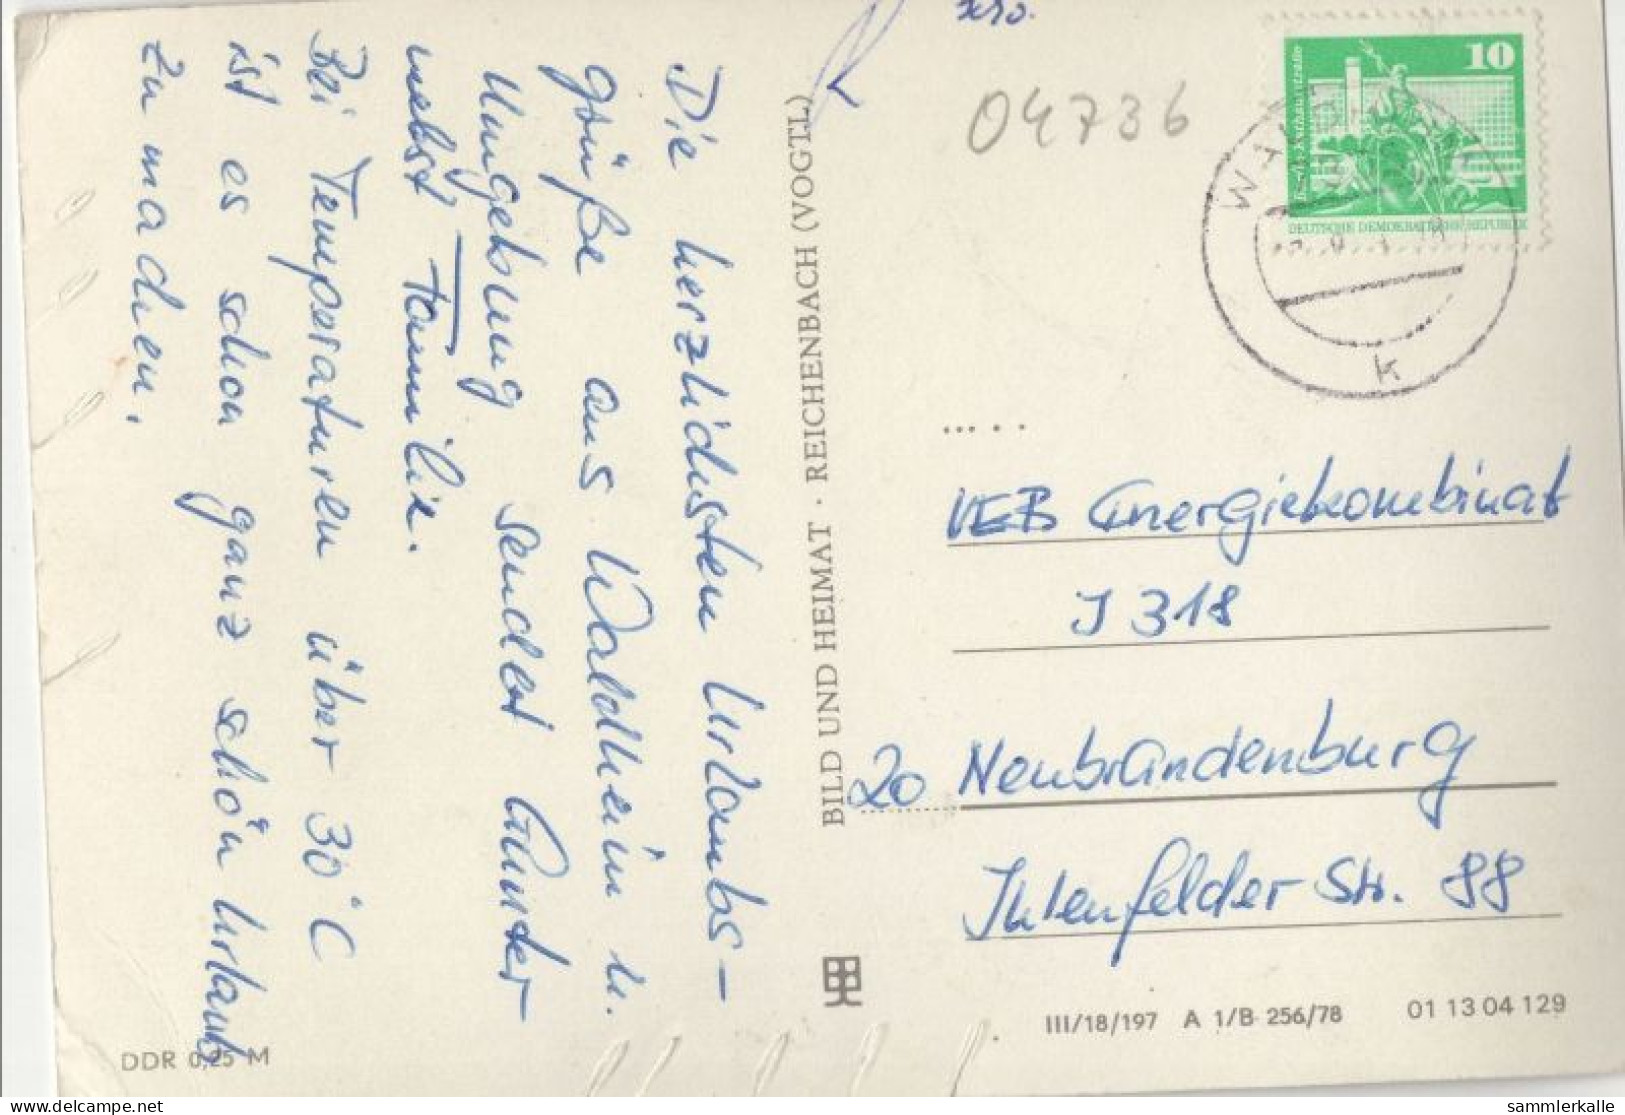 Die herzlichsten Urlaubs-
grüße aus Waldheim u.
Umgebung sendet Günter
nebst Familie.
Bei Temperaturen über 30°C
ist es schon ganz schön Urlaub
zu machen.
BILD UND HEIMAT · REICHENBACH (VOGTL)
04736
10
DEUTSCHE DEMOKRATISCHE REPUBLIK
k
VEB Energiekombinat
J 318
20 Neubrandenburg
Ihlenfelder Str. 88
III/18/197 A 1/B 256/78 01 13 04 129
DDR 0,25 M
sammlerkalle